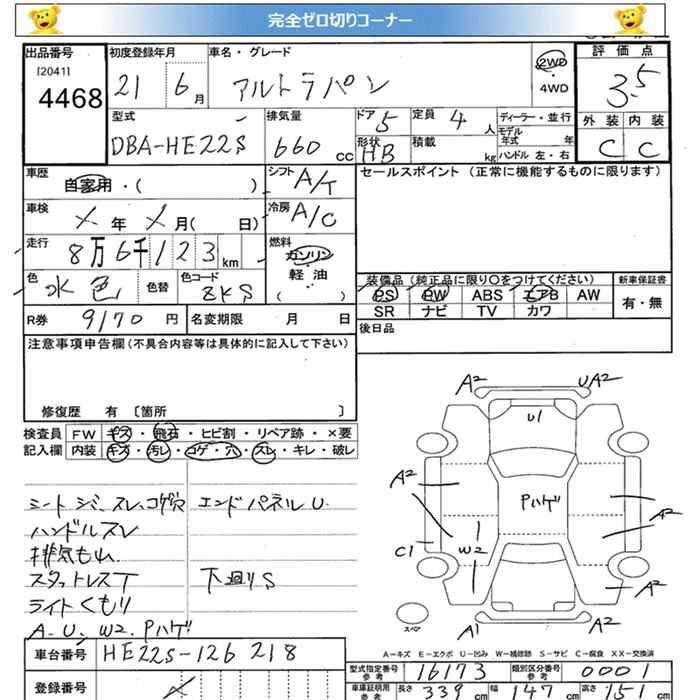 完全ゼロ切りコーナー
出品番号 初度登録年月 車名・グレード 評価点
[2041]
4468
21 6月 アルトラパン 2WD・4WD 3.5
外装 内装
C C
型式 排気量 ドア 5 定員 4人 ディーラー・並行
DBA-HE22S 660cc 形状 HB 積載 kg モデル年式 年
ハンドル 左・右
車歴 自家用・( ) シフト A/T セールスポイント(正常に機能するものに限ります)
車検 X年X月( 日) 冷房 A/C
走行 8万6千123km 燃料 ガソリン・軽油( )
色 水色 色替 色コード ZKS
装備品(純正品に限り○をつけてください) 新車保証書
PS PW ABS エアB AW 有・無
SR ナビ TV カワ
R券 9170円 名変期限 月 日 後日品
注意事項申告欄(不具合内容等は具体的に記入して下さい)
修復歴 有〔箇所 〕
検査員記入欄 FW キズ・飛石・ヒビ割・リペア跡・×要
内装 キズ・汚レ・コゲ・穴・スレ・キレ・破レ
シートシミ、スレ、コゲ穴 エンドパネルU.
ハンドルスレ
排気もれ
スタットレスT 下廻りS
ライトくもり
A.U.W2.Pハゲ
A2 UA2
U1
A2 Pハゲ A2
C1 W2
A2
スペア
A1 A2
A-キズ E-エクボ U-凹み W-補修跡 S-サビ C-腐食 XX-交換済
車台番号 HE22S-126218
型式指定番号 16173 類別区分番号 0001
登録番号
車庫証明用 参考 長さ 339cm 幅 147cm 高さ 151cm